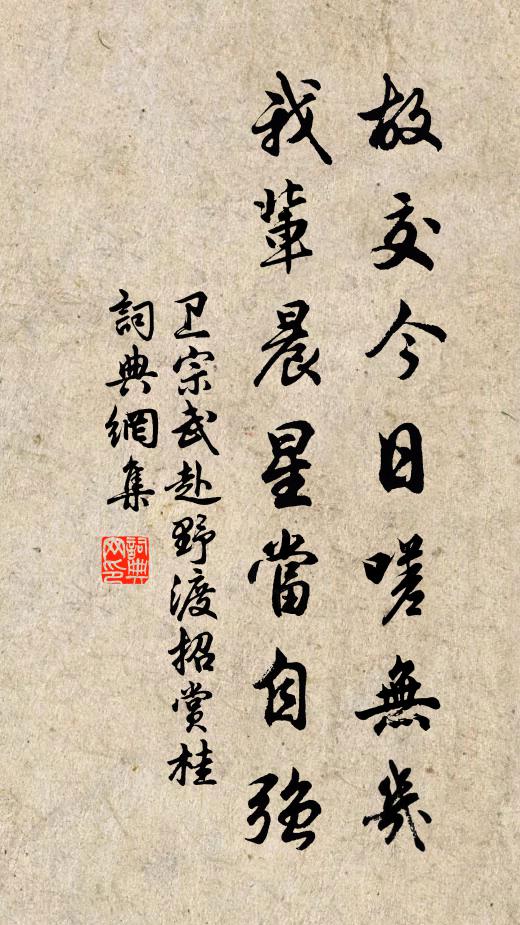 故交今日嗟無幾
我輩晨星當自強
卫宗武赴野渡招赏桂
詞典網集
詞典网印